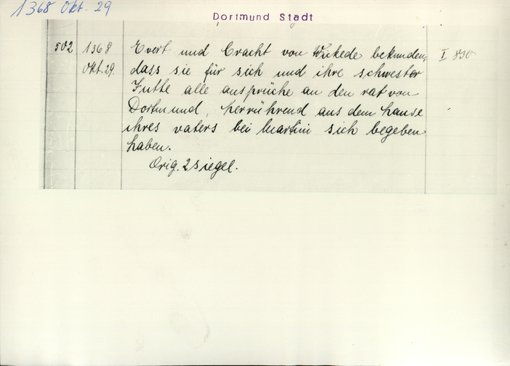 1368 Okt. 29
Dortmund Stadt
502 1368 Evert und Cracht von Wikede bekunden, I 830
Okt. 29. dass sie für sich und ihre schwester
Jutte alle ansprüche an den rat von
Dortmund, herrührend aus dem hause
ihres vaters bei Martini sich begeben
haben.
Orig. 2 siegel.